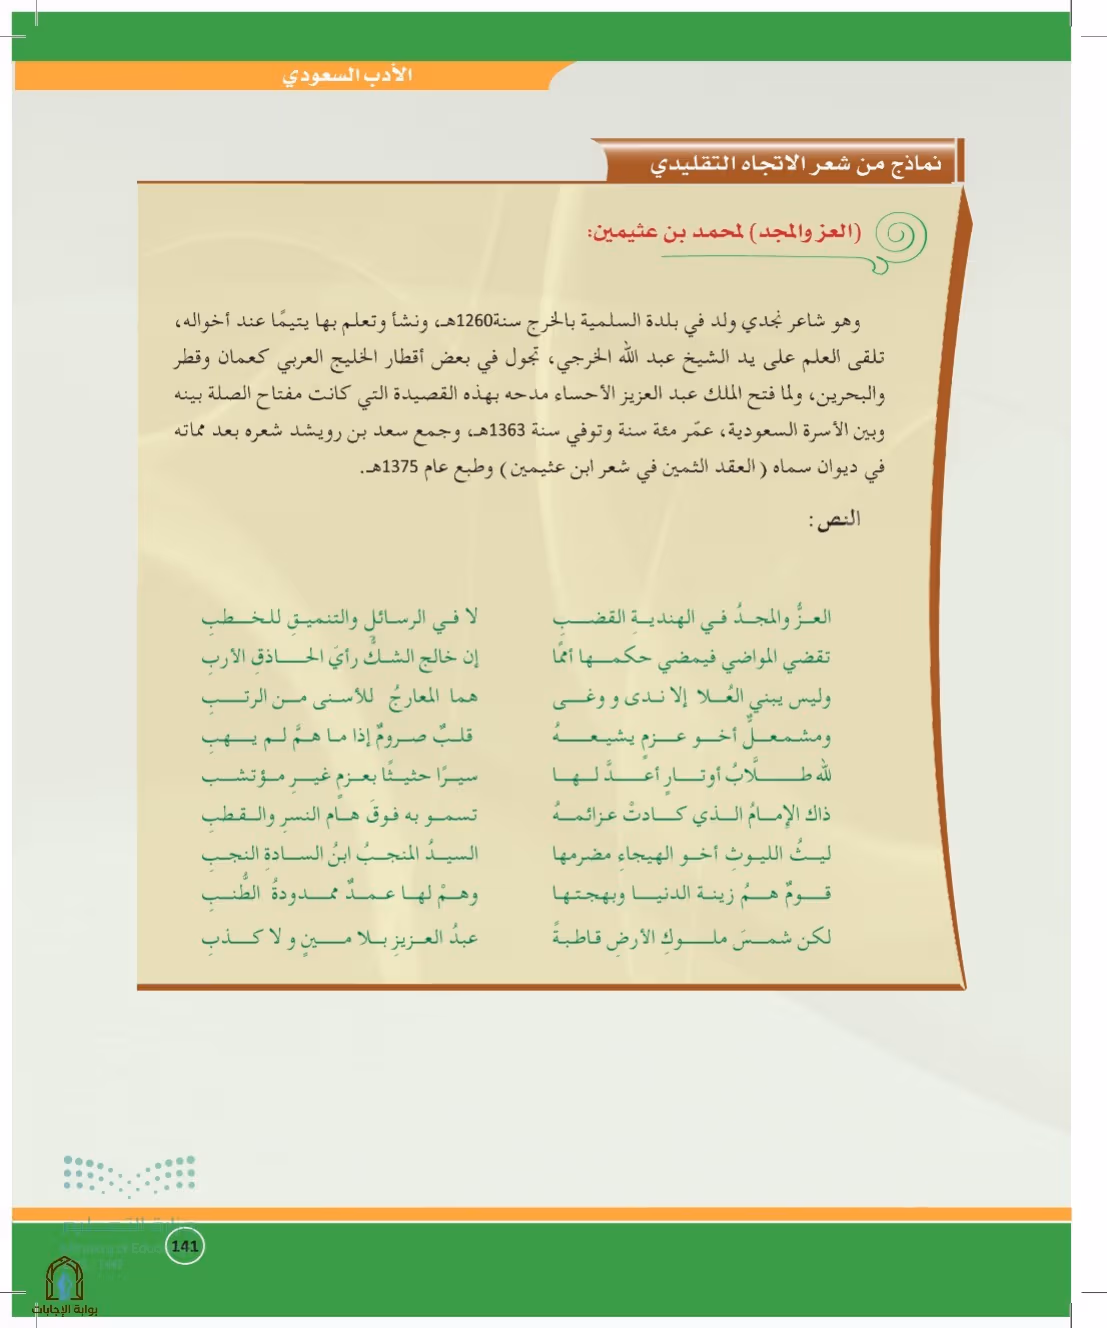 الأدب السعودي
نماذج من شعر الاتجاه التقليدي
(العز والمجد) لمحمد بن عثيمين:
وهو شاعر نجدي ولد في بلدة السلمية بالخرج سنة1260هـ، ونشأ وتعلم بها يتيمًا عند أخواله،
تلقى العلم على يد الشيخ عبد الله الخرجي، تجول في بعض أقطار الخليج العربي كعمان وقطر
والبحرين، ولما فتح الملك عبد العزيز الأحساء مدحه بهذه القصيدة التي كانت مفتاح الصلة بينه
وبين الأسرة السعودية، عمّر مئة سنة وتوفي سنة 1363هـ، وجمع سعد بن رويشد شعره بعد مماته
في ديوان سماه (العقد الثمين في شعر ابن عثيمين) وطبع عام 1375هـ.
النص:
العزُّ والمجدُ في الهنديةِ القضبِ لا في الرسائلِ والتنميقِ للخطبِ
تقضي المواضي فيمضي حكمها أممًا إن خالج الشكُّ رأيَ الحاذقِ الأربِ
وليس يبني العُلا إلا ندى و وغى هما المعارجُ للأسنى من الرتبِ
ومشمعلٌّ أخو عزمٍ يشيعهُ قلبٌ صرومٌ إذا ما همَّ لم يهبِ
لله طلَّابُ أوتارٍ أعدَّ لها سيرًا حثيثًا بعزمٍ غيرِ مؤتشبِ
ذاك الإمامُ الذي كادتْ عزائمهُ تسمو به فوقَ هام النسرِ والقطبِ
ليثُ الليوثِ أخو الهيجاءِ مضرمها السيدُ المنجبُ ابنُ السادةِ النجبِ
قومٌ همُ زينة الدنيا وبهجتها وهمْ لها عمدٌ ممدودةُ الطُّنبِ
لكن شمسَ ملوكِ الأرضِ قاطبةً عبدُ العزيزِ بلا مينٍ و لا كذبِ
وزارة التعليم
141
بوابة الإجابات